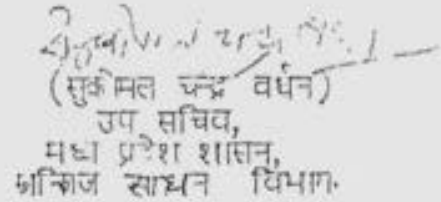 (सुकोमल चन्द्र वर्धन)
उप सचिव,
मध्य प्रदेश शासन,
खनिज साधन विभाग.